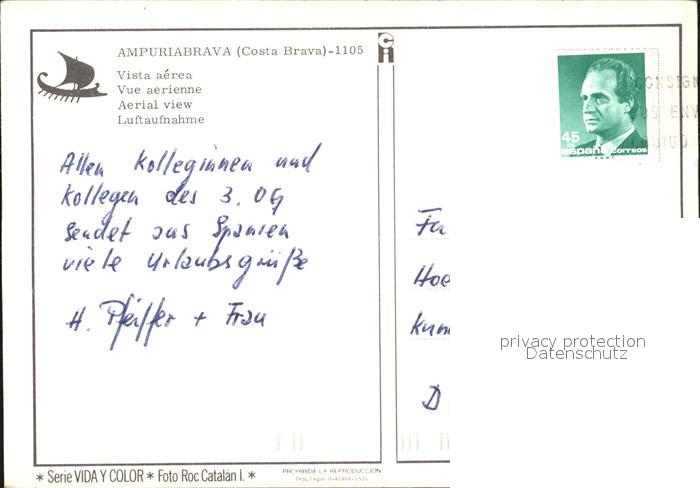 AMPURIABRAVA (Costa Brava)-1105
Vista aérea
Vue aerienne
Aerial view
Luftaufnahme
Allen Kolleginnen und
Kollegen des 3. OG
sendet aus Spanien
viele Urlaubsgrüße
H. Pfeiffer + Frau
* Serie VIDA Y COLOR * Foto Roc Catalán I. *
PROHIBIDA LA REPRODUCCION
45
españa correos
F.N.M.T.
CONSIGN
ENV
Fa
Hoe
D
privacy protection
Datenschutz